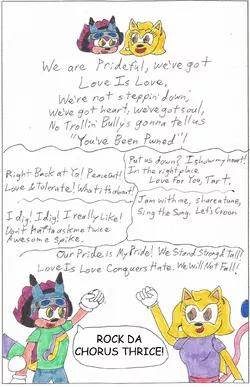 We are Prideful, we've got
Love Is Love,
We're not steppin' down,
We've got heart, we've got soul,
No Trollin' Bullys gonna tell us
"You've Been Pwned"!
Right Back at Yo! Peace Out!
Love & Tolerate! What it's about!
Put us down? I show my heart!
In the right place
Love for You, Tart.
I dig! I dig! I really like!
Don't Hafta ask me twice
Awesome Spike.
Jam with me, share a tune,
Sing the Song. Let's Croon
Our Pride is My Pride! We Stand Strong & Tall!
Love Is Love Conquers Hate. We Will Not Fall!
ROCK DA
CHORUS THRICE!